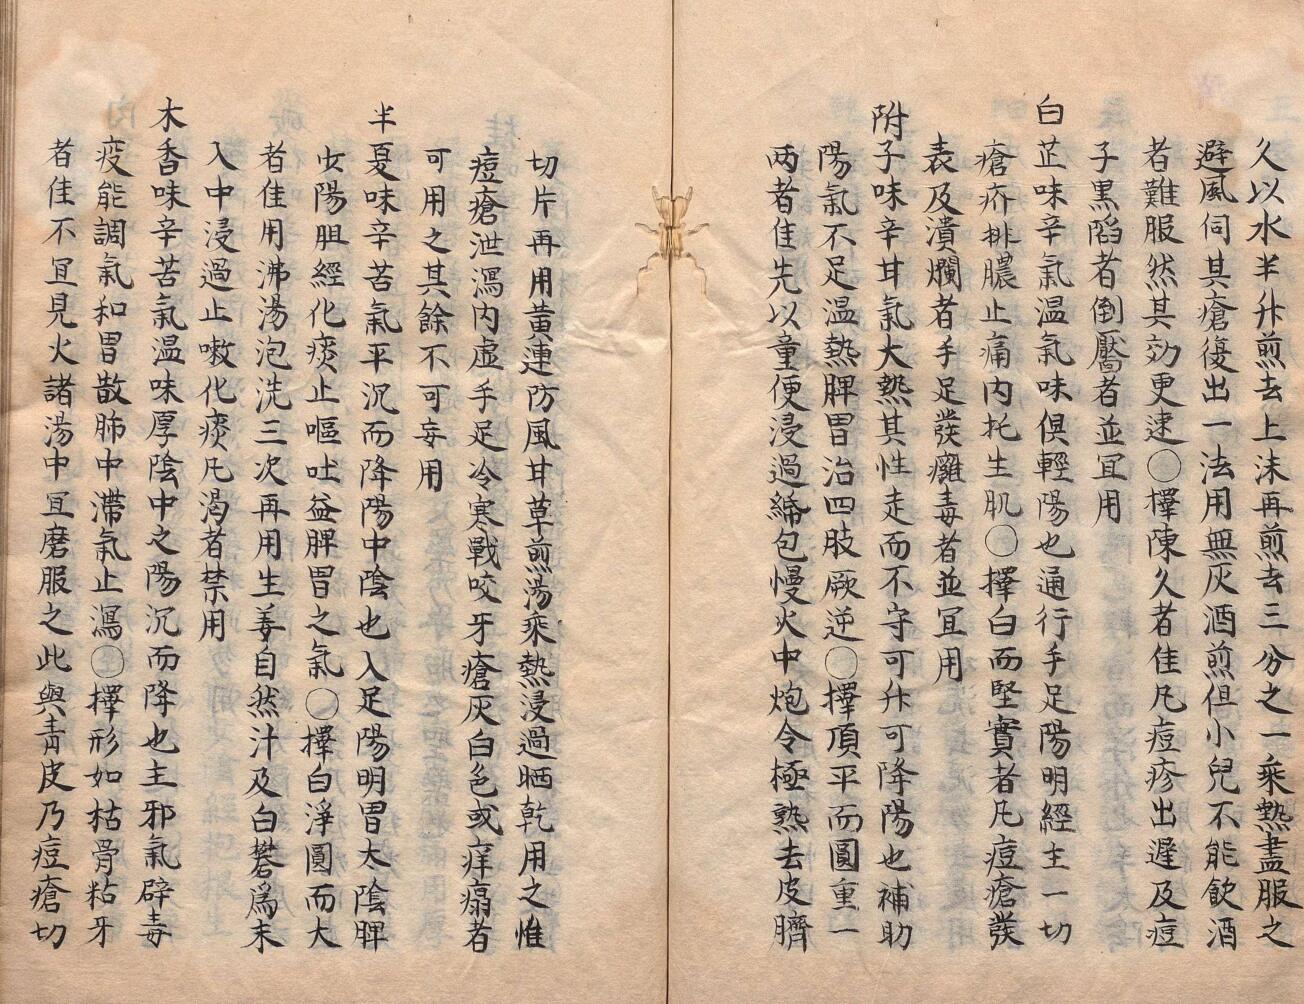 久以水半升煎去上沫再煎去三分之一乘熱盡服之
避風伺其瘡復出一法用無灰酒煎但小兒不能飲酒
者難服然其効更速○擇陳久者佳凡痘疹出遲及痘
子黑陷者倒靨者並冝用
白芷味辛氣温氣味俱輕陽也通行手足陽明經主一切
瘡疥排膿止痛内托生肌○擇白而堅實者凡痘瘡發
表及潰爛者手足發癰毒者並冝用
附子味辛甘氣大熱其性走而不守可升可降陽也補助
陽氣不足温熱脾胃治四肢厥逆○擇頂平而圓重一
两者佳先以童便浸過綿包慢火中炮令極熱去皮臍
切片再用黄連防風甘草煎湯乘熱浸過晒乾用之惟
痘瘡泄瀉内虚手足冷寒戰咬牙瘡灰白色或痒塌者
可用之其餘不可妄用
半夏味辛苦氣平沉而降陽中陰也入足陽明胃太陰脾
少陽胆經化痰止嘔吐益脾胃之氣○擇白淨圓而大
者佳用沸湯泡洗三次再用生姜自然汁及白礬為末
入中浸過止嗽化痰凡渴者禁用
木香味辛苦氣温味厚陰中之陽沉而降也主邪氣辟毒
疫能調氣和胃散肺中滯氣止瀉○擇形如枯骨粘牙
者佳不冝見火諸湯中冝磨服之此與青皮乃痘瘡切